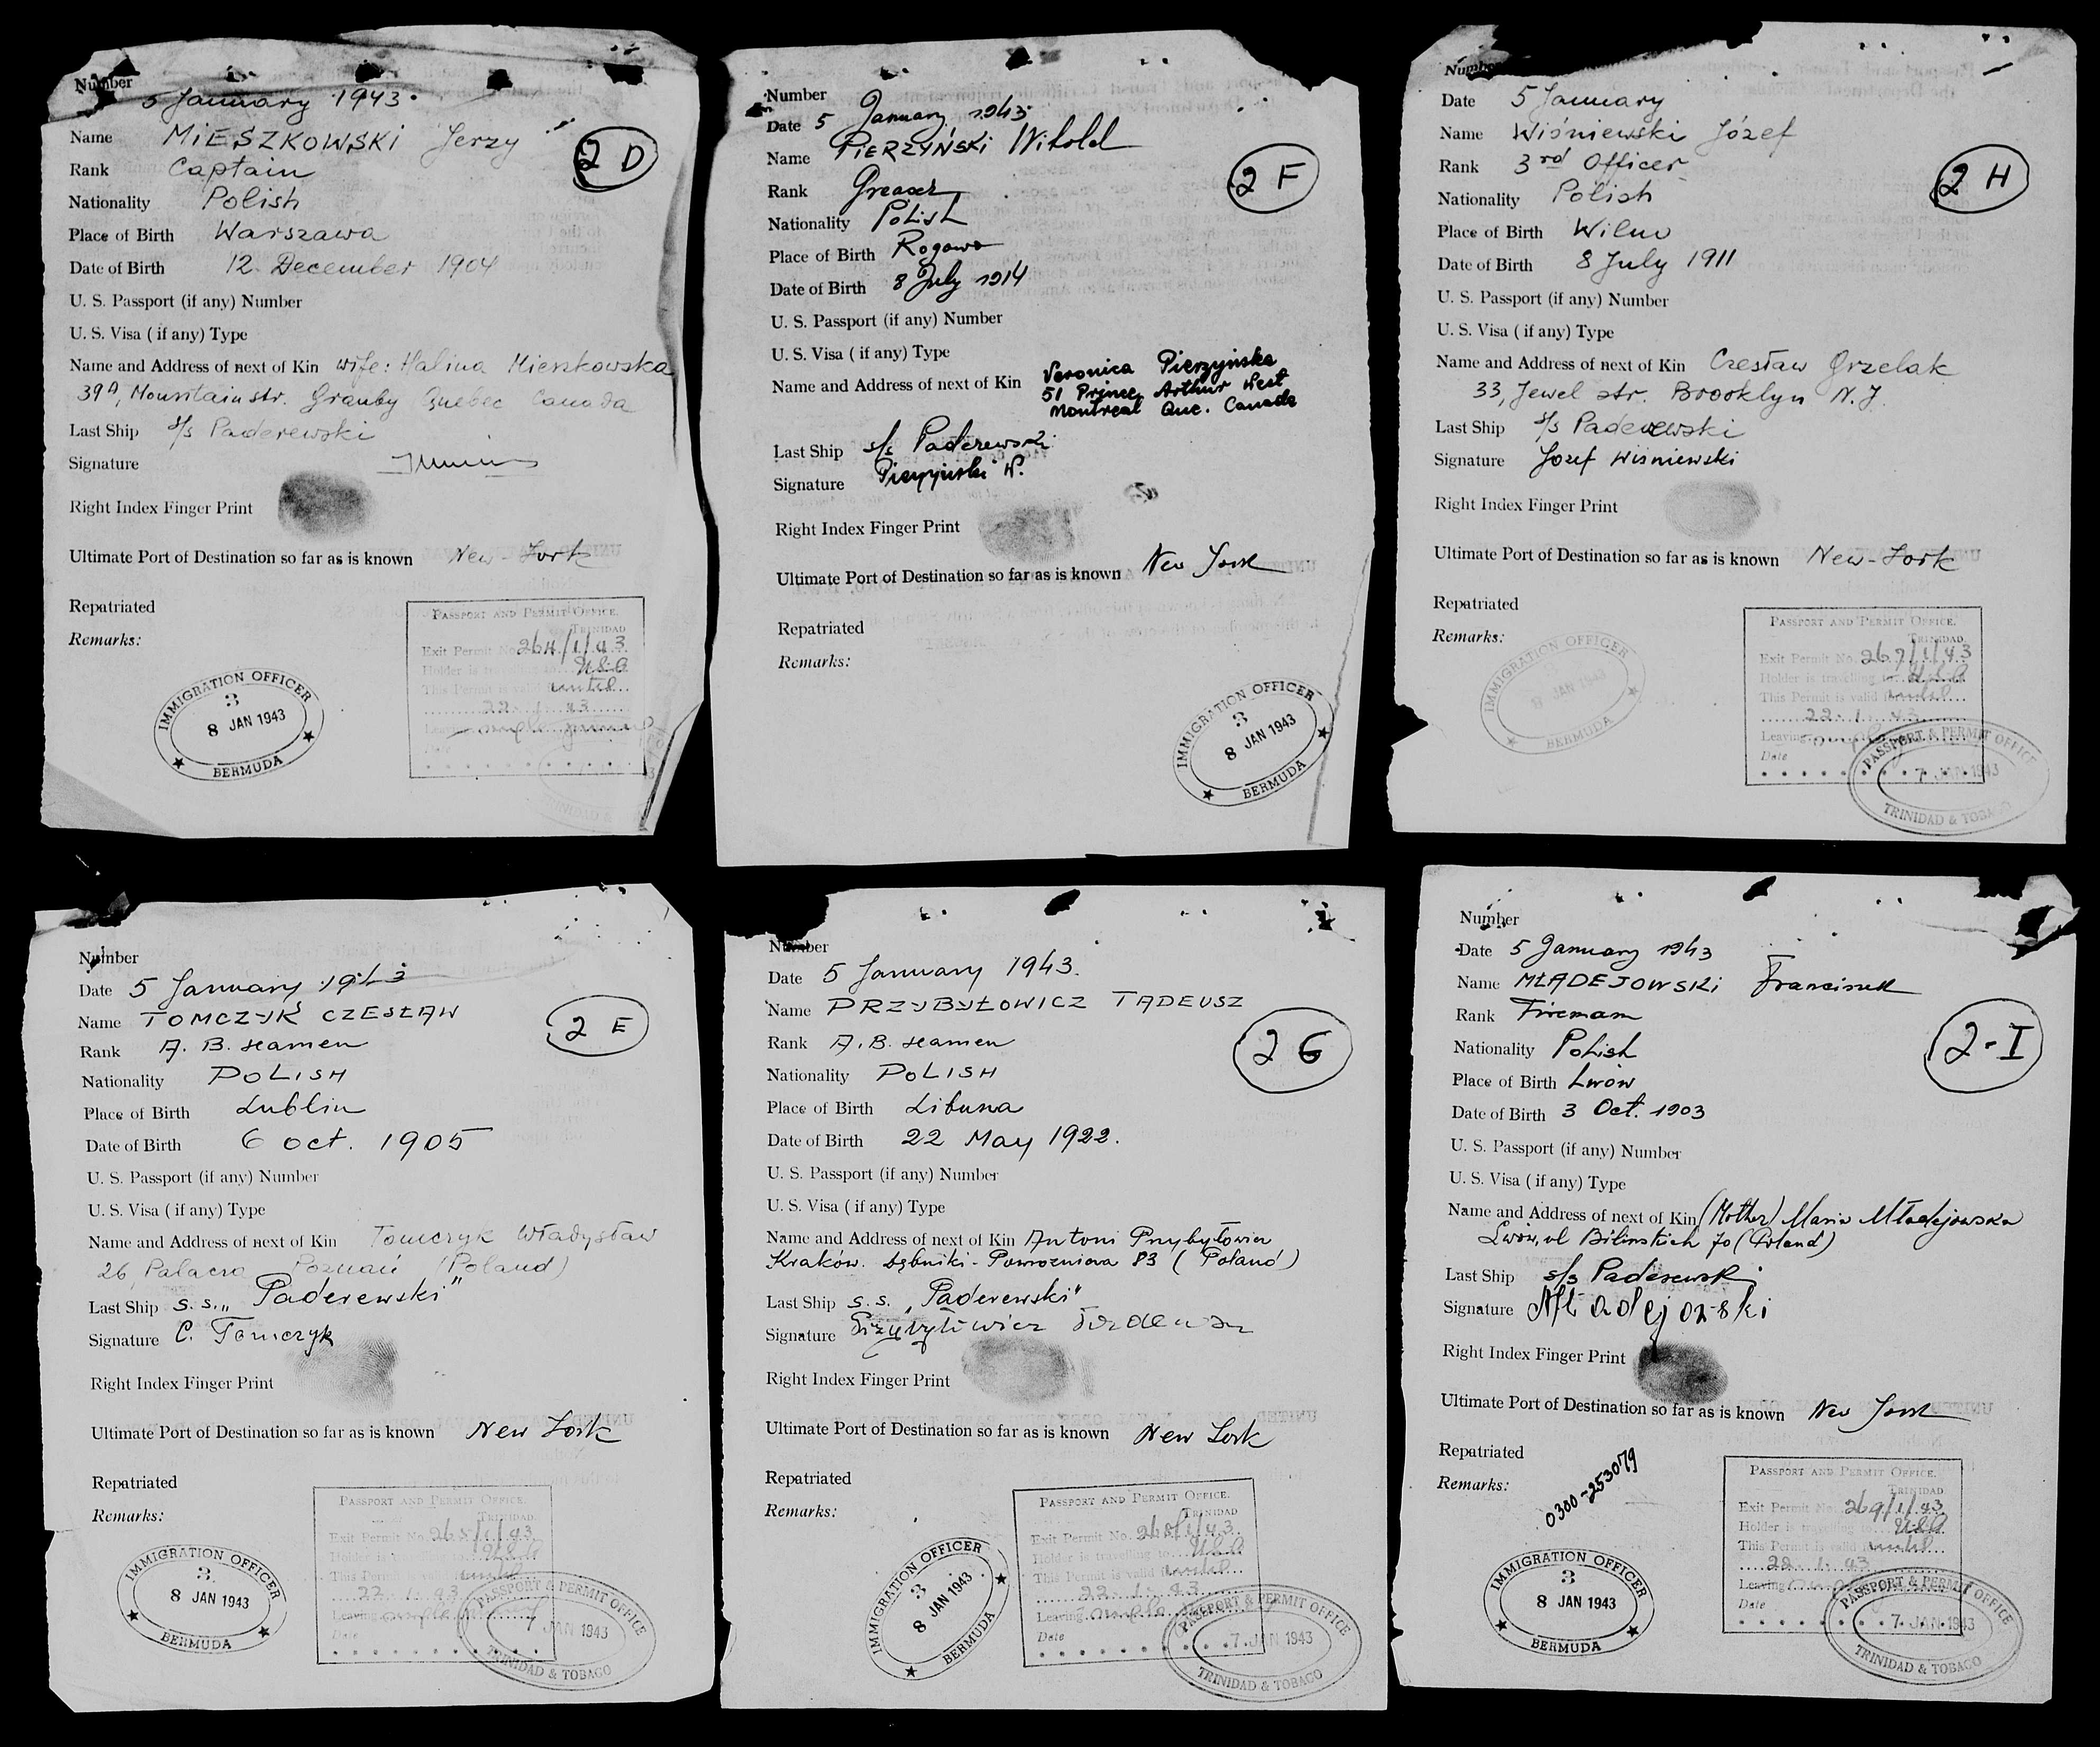 Number
5 January 1943.
Name MIESZKOWSKI Jerzy
2 D
Rank Captain
Nationality Polish
Place of Birth Warszawa
Date of Birth 12 December 1904
U. S. Passport (if any) Number
U. S. Visa ( if any) Type
Name and Address of next of Kin wife: Halina Mieszkowska
39A, Mountain str. Granby Quebec Canada
Last Ship s/s Paderewski
Signature
Right Index Finger Print
Ultimate Port of Destination so far as is known New-York
Repatriated
Remarks:
PASSPORT AND PERMIT OFFICE.
TRINIDAD
Exit Permit No. 264/1/43
Holder is travelling to USA
This Permit is valid until
22. 1. 43
Leaving
IMMIGRATION OFFICER
3
8 JAN 1943
BERMUDA
Number
Date 5 January 1943
Name PIERZYŃSKI Witold
2 F
Rank Greaser
Nationality Polish
Place of Birth Rogowo
Date of Birth 8 July 1914
U. S. Passport (if any) Number
U. S. Visa ( if any) Type
Name and Address of next of Kin Veronica Pierzyńska
51 Prince Arthur West
Montreal Que. Canada
Last Ship s/s Paderewski
Signature Pierzyński W.
Right Index Finger Print
Ultimate Port of Destination so far as is known New York
Repatriated
Remarks:
IMMIGRATION OFFICER
3
8 JAN 1943
BERMUDA
Number
Date 5 January
Name Wiśniewski Józef
Rank 3rd Officer
2 H
Nationality Polish
Place of Birth Wilno
Date of Birth 8 July 1911
U. S. Passport (if any) Number
U. S. Visa ( if any) Type
Name and Address of next of Kin Czesław Grzelak
33, Jewel str. Brooklyn N. J.
Last Ship s/s Paderewski
Signature Jozef Wisniewski
Right Index Finger Print
Ultimate Port of Destination so far as is known New-York
Repatriated
Remarks:
PASSPORT AND PERMIT OFFICE.
TRINIDAD
Exit Permit No. 267/1/43
Holder is travelling to USA
This Permit is valid until
22. 1. 43
Leaving
Date
IMMIGRATION OFFICER
8 JAN 1943
BERMUDA
PASSPORT & PERMIT OFFICE
7 JAN 1943
TRINIDAD & TOBAGO
Number
Date 5 January 1943
Name TOMCZYK CZESŁAW
2 E
Rank A. B. seamen
Nationality POLISH
Place of Birth Lublin
Date of Birth 6 oct. 1905
U. S. Passport (if any) Number
U. S. Visa ( if any) Type
Name and Address of next of Kin Tomczyk Władysław
26, Palacza Poznań (Poland)
Last Ship s.s. „Paderewski"
Signature C. Tomczyk
Right Index Finger Print
Ultimate Port of Destination so far as is known New York
Repatriated
Remarks:
PASSPORT AND PERMIT OFFICE.
TRINIDAD
Exit Permit No. 265/1/43
Holder is travelling to USA
This Permit is valid until
22. 1. 43
Leaving
Date
IMMIGRATION OFFICER
3
8 JAN 1943
BERMUDA
PASSPORT & PERMIT OFFICE
7 JAN 1943
TRINIDAD & TOBAGO
Number
Date 5 January 1943.
Name PRZYBYŁOWICZ TADEUSZ
Rank A. B. seamen
2 G
Nationality POLISH
Place of Birth Libusza
Date of Birth 22 May 1922.
U. S. Passport (if any) Number
U. S. Visa ( if any) Type
Name and Address of next of Kin Antoni Przybyłowicz
Kraków. Dębniki - Powroźniowa 83 ( Poland )
Last Ship s.s. „Paderewski"
Signature Przybyłowicz Tadeusz
Right Index Finger Print
Ultimate Port of Destination so far as is known New York
Repatriated
Remarks:
PASSPORT AND PERMIT OFFICE.
TRINIDAD
Exit Permit No. 268/1/43
Holder is travelling to USA
This Permit is valid until
22. 1. 43
Leaving
Date
IMMIGRATION OFFICER
3
8 JAN 1943
BERMUDA
PASSPORT & PERMIT OFFICE
7 JAN 1943
TRINIDAD & TOBAGO
Number
Date 5 January 1943
Name MŁADEJOWSKI Franciszek
Rank Fireman
2-I
Nationality Polish
Place of Birth Lwów
Date of Birth 3 Oct. 1903
U. S. Passport (if any) Number
U. S. Visa ( if any) Type
Name and Address of next of Kin (Mother) Maria Mładejowska
Lwów, ul Bilinskich 70 (Poland)
Last Ship s/s Paderewski
Signature Mładejowski
Right Index Finger Print
Ultimate Port of Destination so far as is known New York
Repatriated
Remarks:
0300-253079
PASSPORT AND PERMIT OFFICE.
TRINIDAD
Exit Permit No. 269/1/43
Holder is travelling to USA
This Permit is valid until
22. 1. 43
Leaving
Date
IMMIGRATION OFFICER
3
8 JAN 1943
BERMUDA
PASSPORT & PERMIT OFFICE
7 JAN 1943
TRINIDAD & TOBAGO